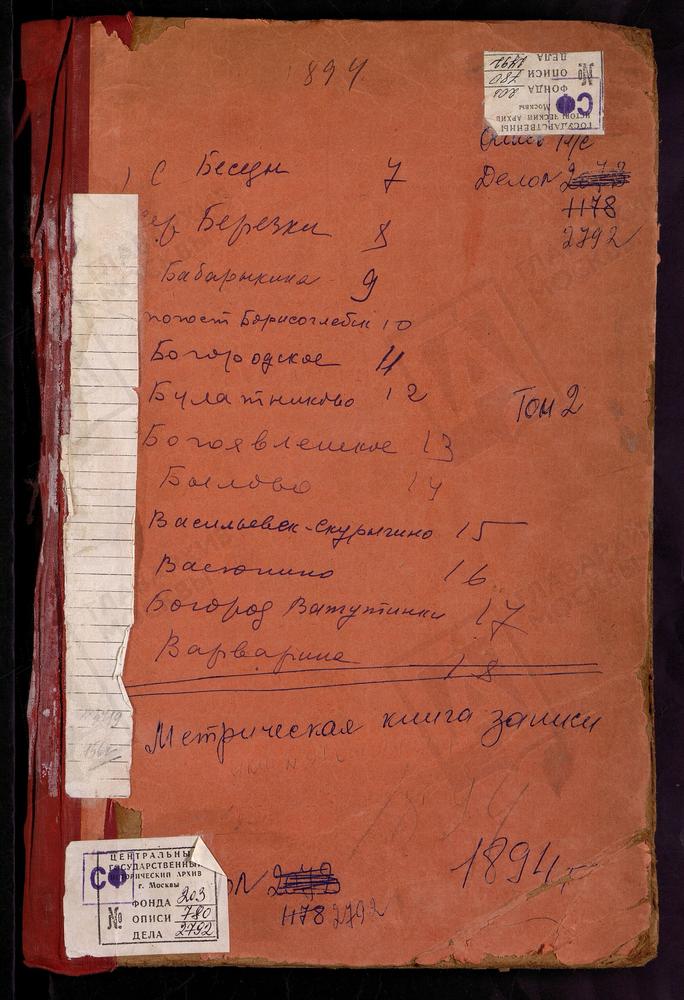 894
ГОСУДАРСТВЕННЫ
ИСТОРИЧЕСКИЙ АРХИВ
Москвы
СФ
ФОНДА 203
№ ОПИСИ 780
ДЕЛА 2792
Опись
Дело№ 2073
1178
2792
1 С Беседы 7
Березки 8
Бабарыкина 9
погост Борисоглебск 10
Богородское 11
Булатниково 12
Том 2
Богоявленское 13
Былово 14
Васильевск-Скурыгино 15
Васюнино 16
Богород Ватутинки 17
Варварина 18
Метрическая книга записи
1894 г
№ 2073
1178 2792
ЦЕНТРАЛЬНЫ
ГОСУДАРСТВЕННЫ
ИСТОРИЧЕСКИЙ АРХИВ
г. Москвы
СФ
ФОНДА 203
№ ОПИСИ 780
ДЕЛА 2792